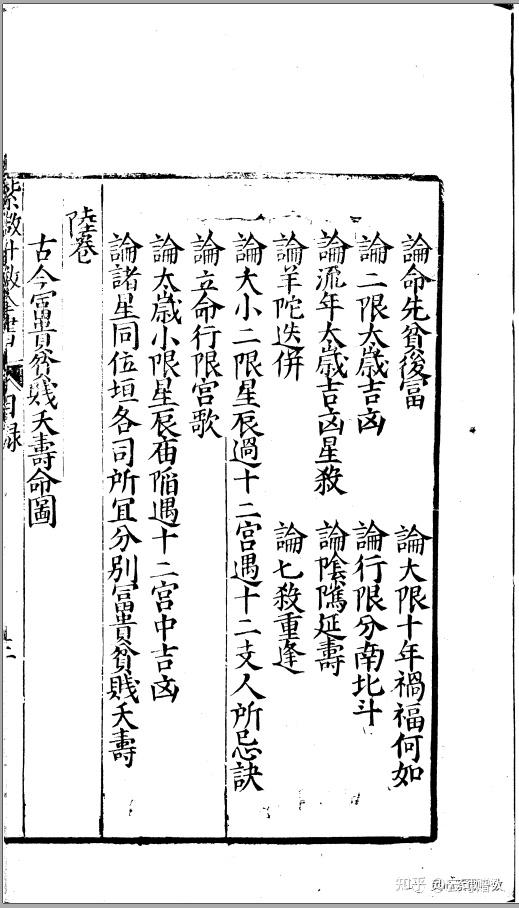 論命先貧後富 論大限十年禍福何如
論二限太歲吉凶 論行限分南北斗
論流年太歲吉凶星殺 論陰隲延壽
論羊陀迭併 論七殺重逢
論大小二限星辰過十二宮遇十二支人所忌訣
論立命行限宮歌
論太歲小限星辰庙陷遇十二宮中吉凶
論諸星同位垣各司所宜分別冨貴貧賎夭壽
陸卷
古今冨貴貧賎夭壽命圖
紫微斗数全書 目録
知乎